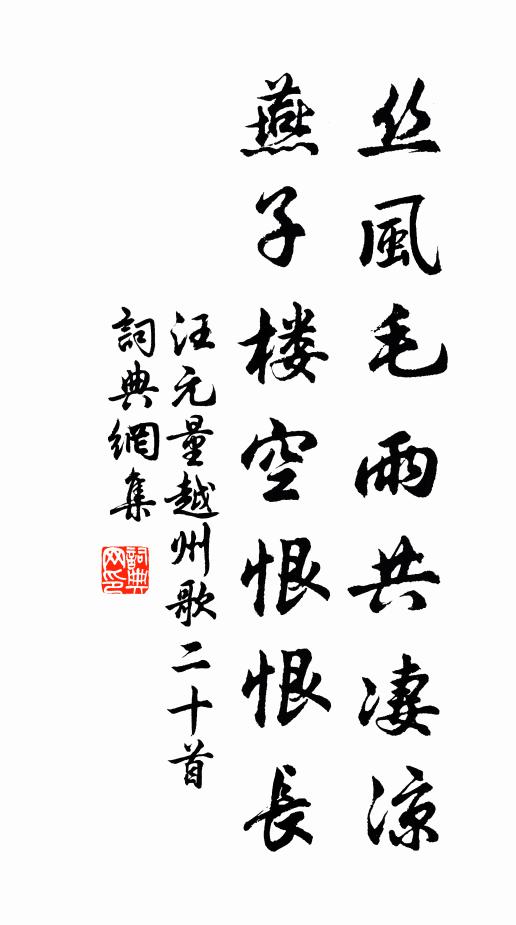 丝風毛雨共凄涼
燕子楼空恨恨長
汪元量越州歌二十首
詞典網集
詞典网印